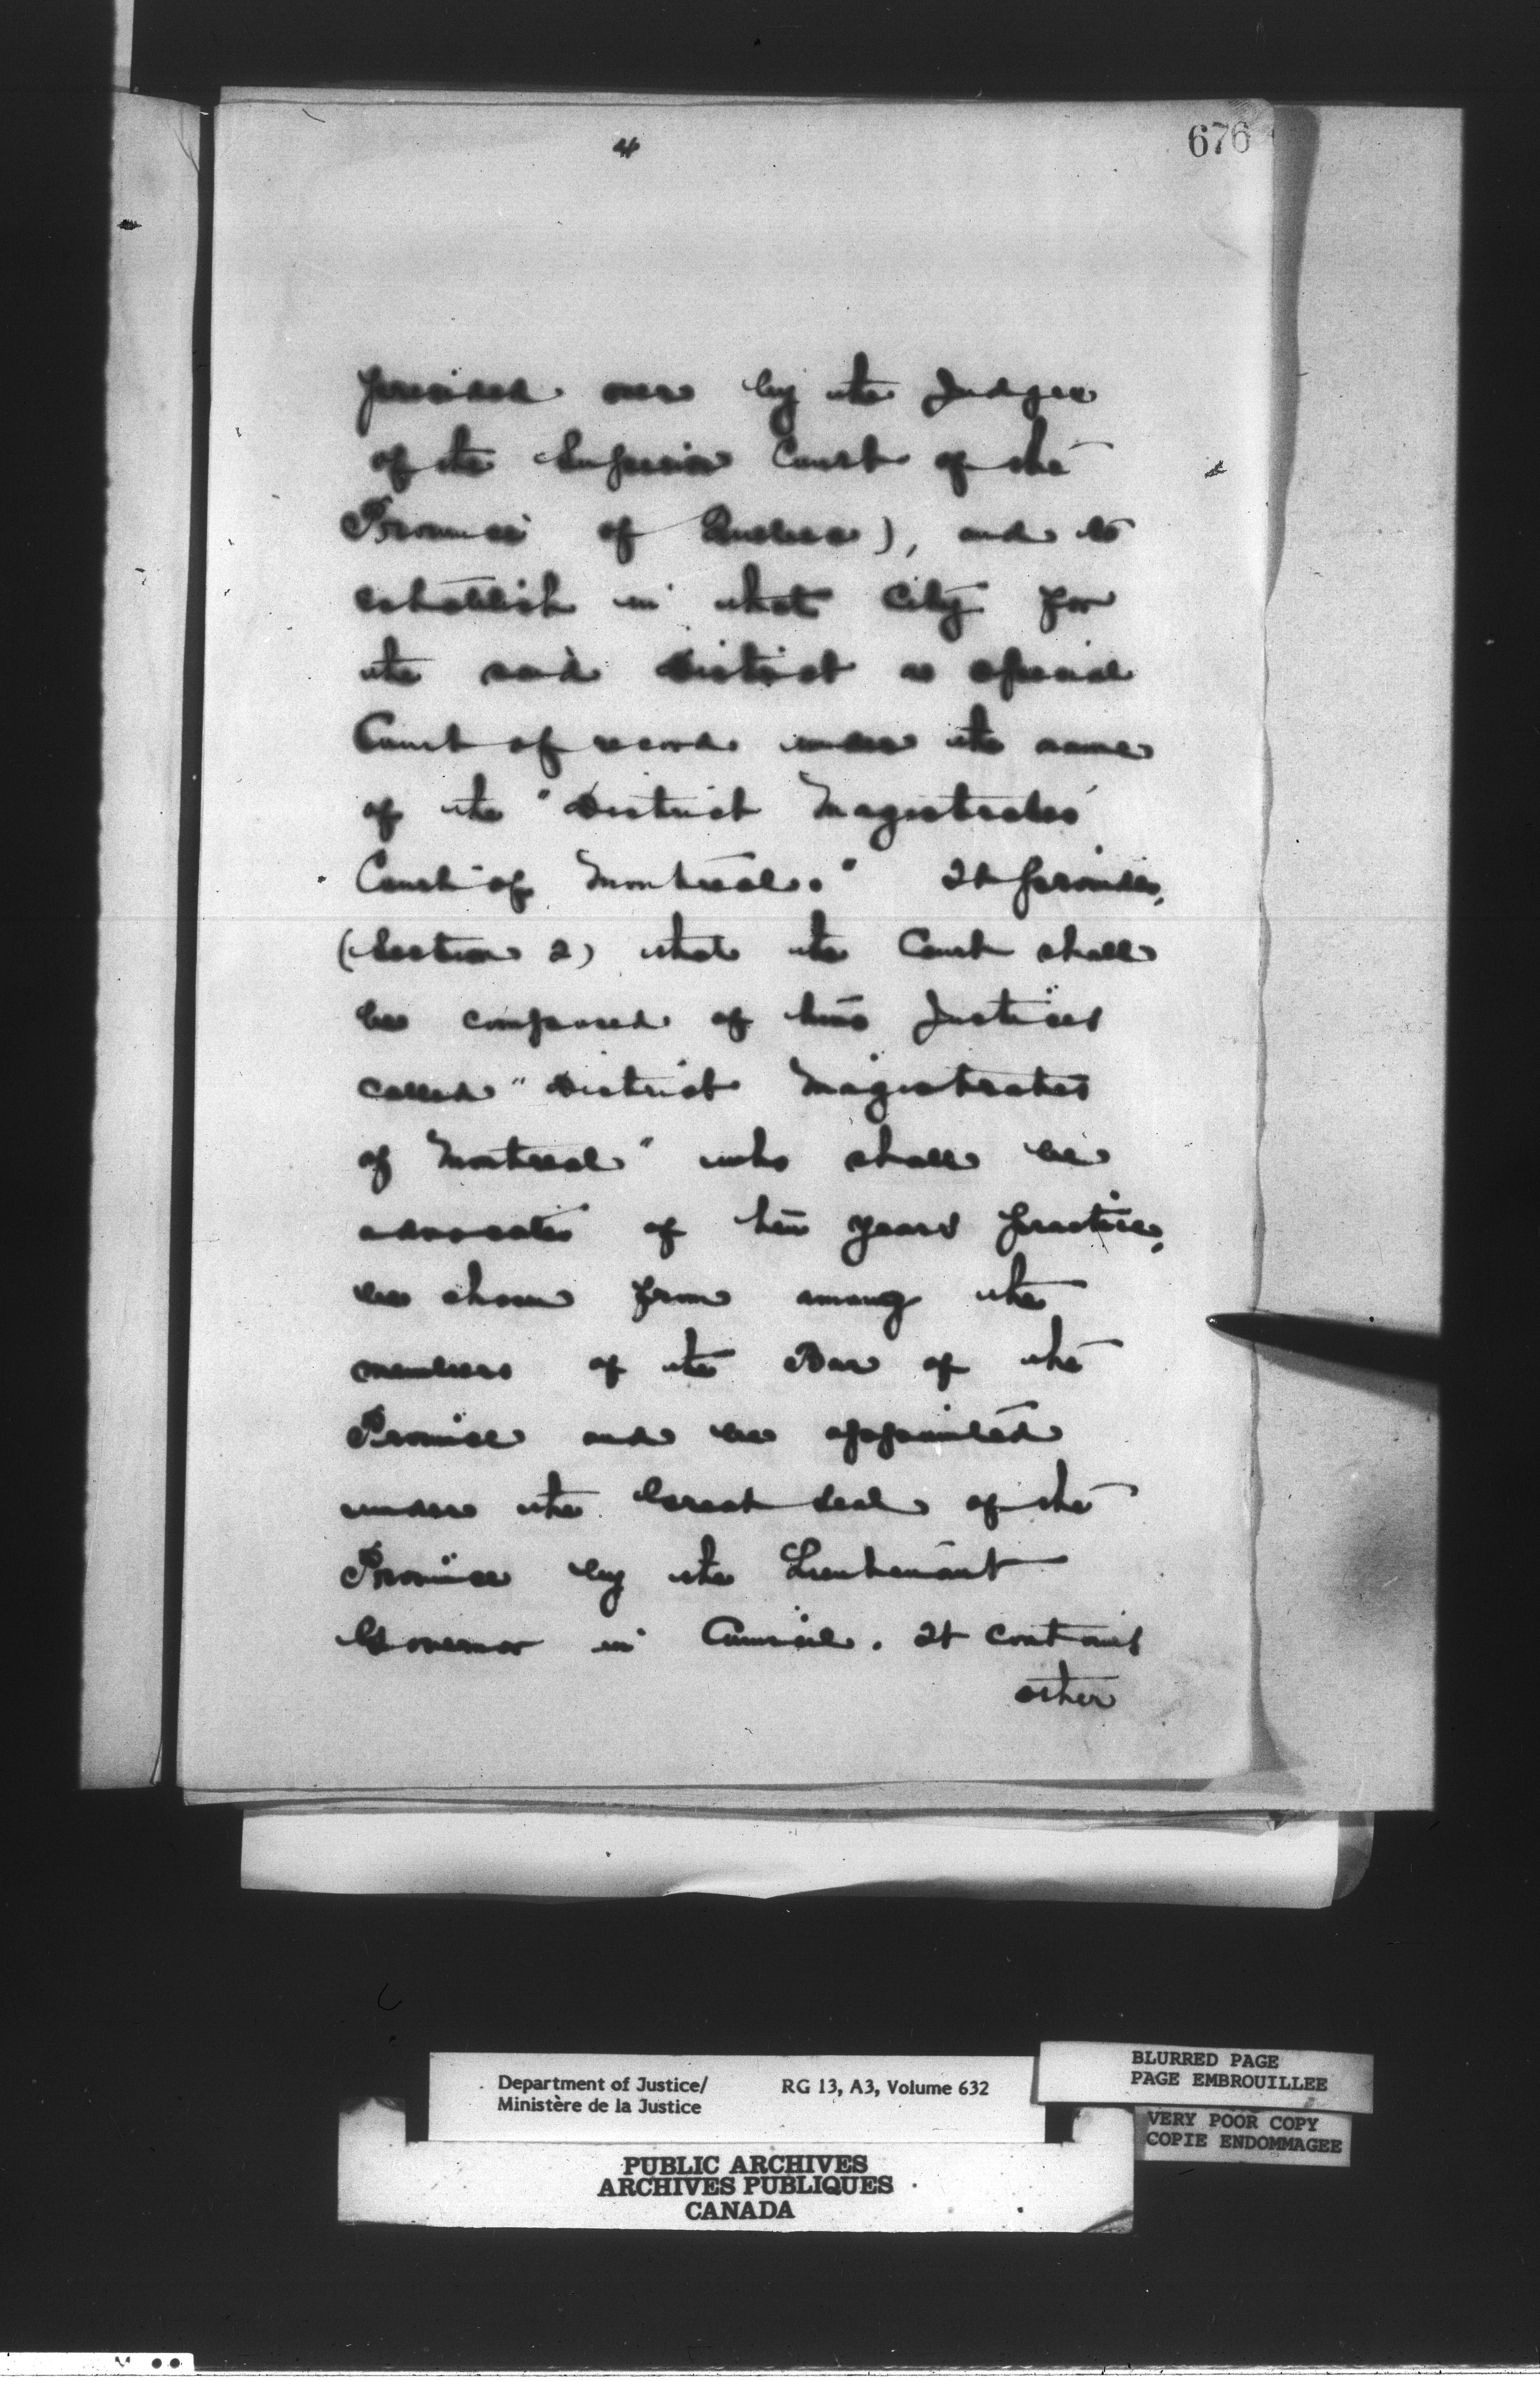 4
676
presided over by the Judges
of the Superior Court of the
Province of Quebec), and to
establish in that City for
the said District a special
Court of record under the name
of the "District Magistrates
Court of Montreal." It provides,
(Section 2) that the Court shall
be composed of two Justices
called "District Magistrates
of Montreal" who shall be
advocates of ten years practice,
be chosen from among the
members of the Bar of the
Province and be appointed
under the Great Seal of the
Province by the Lieutenant
Governor in Council. It contains
other
Department of Justice/ RG 13, A3, Volume 632
Ministère de la Justice
BLURRED PAGE
PAGE EMBROUILLEE
VERY POOR COPY
COPIE ENDOMMAGEE
PUBLIC ARCHIVES
ARCHIVES PUBLIQUES
CANADA